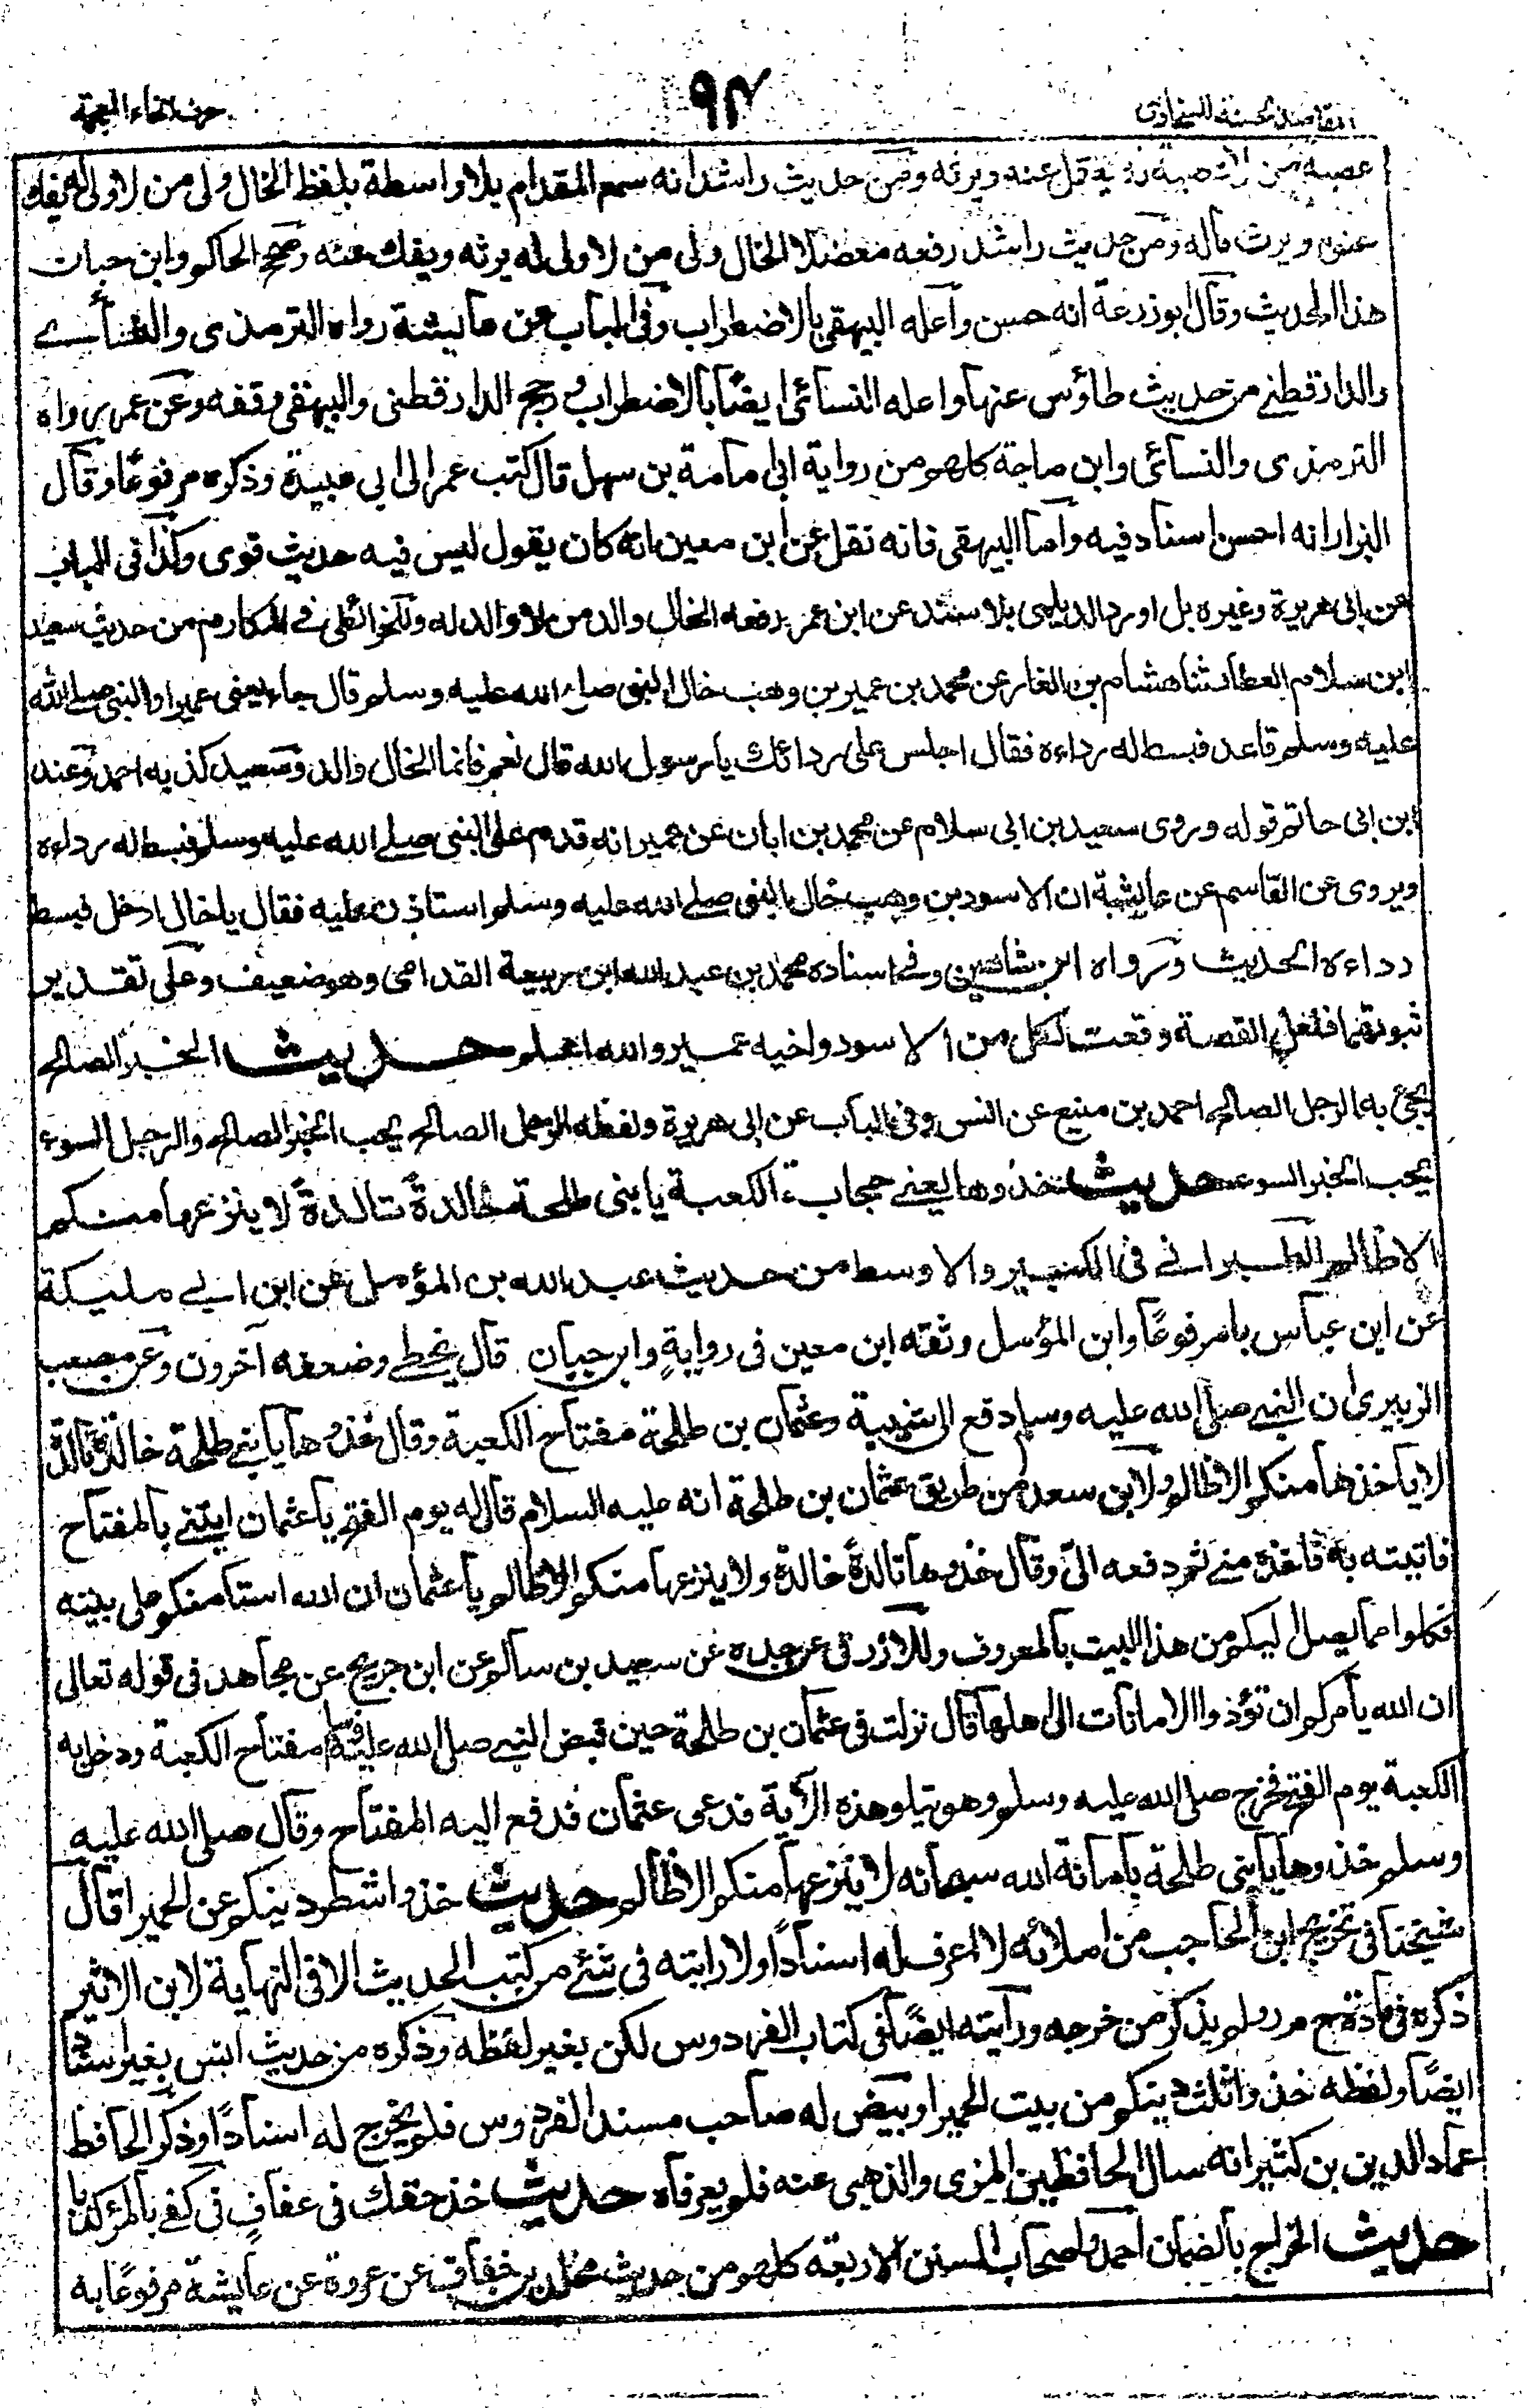 المقاصد الحسنة للسخاوى
٩٢
حرف الخاء المعجمة
عصبة من لا عصبة له يعقل عنه ويرثه ومن حديث راشد انه سمع المقدام بلا واسطة بلفظ الخال ولى من لا ولى له يفك
عنوه ويرث ماله ومن حديث راشد رفعه معضلا الخال ولى من لا ولى له يرثه ويفك عنه وصحح الحاكم وابن حبان
هذا الحديث وقال ابو زرعة انه حسن وأعله البيهقى بالاضطراب وفى الباب عن عايشة رواه الترمذى والنسائے
والدارقطنے من حديث طاؤس عنها واعله النسائى ايضًا بالاضطراب ورجح الدارقطنى والبيهقى وقفه وعن عمر رواه
الترمذى والنسائى وابن ماجة كلهم من رواية ابى امامة بن سهل قال كتب عمر الى ابى عبيدة وذكره مرفوعًا وقال
البزار انه احسن اسناد فيه وأما البيهقى فانه نقل عن ابن معين انه كان يقول ليس فيه حديث قوى وكذا فى الباب
عن ابى هريرة وغيره بل اورد الديلمى بلا سند عن ابن عمر رفعه الخال والد من لا والد له وللخرائطى فے المكارم من حديث سعيد
ابن سلام العطار ثنا هشام بن الغاز عن محمد بن عمير بن وهب خال النبى صلے الله عليه وسلم قال جاء يعنى عميرا والنبى صلے الله
عليه وسلم قاعد فبسط له رداءه فقال اجلس على ردائك يا رسول الله قال نعم فانما الخال والد وسعيد كذبه احمد وعند
ابن ابى حاتم قوله وروى سعيد بن ابى سلام عن محمد بن ابان عن عمير انه قدم على النبى صلے الله عليه وسلم فبسط له رداءه
ويروى عن القاسم عن عايشة ان الاسود بن وهب خال النبى صلے الله عليه وسلم استاذن عليه فقال يا خال ادخل فبسط
رداءه الحديث ورواه ابن شاهين وفے اسناده محمد بن عبد الله ابن ربيعة القدامى وهو ضعيف وعلى تقدير
ثبوتهما فلعل القصة وقعت لكل من الاسود واخيه عمير والله اعلم حديث الخبر الصالح
يجئ به الرجل الصالح احمد بن منيع عن انس وفى الباب عن ابى هريرة ولفظه الرجل الصالح يحب الخبر الصالح والرجل السوء
يحب الخبر السوء حديث خذوها يعنے حجابة الكعبة يا بنى طلحة خالدةً تالدةً لا ينزعها منكم
الا ظالم الطبرانے فى الكبير والاوسط من حديث عبد الله بن المؤمل عن ابن ابے مليكة
عن ابن عباس بها مرفوعًا وابن المؤمل وثقه ابن معين فى روايةٍ وابن حبان قال يخطے وضعفه آخرون وعن مصعب
الزبيرى ان النبے صلى الله عليه وسلم دفع الى شيبة وعثمان بن طلحة مفتاح الكعبة وقال خذوها يا بنے طلحة خالدة تالدة
لا ياخذها منكم الا ظالم ولابن سعد من طريق عثمان بن طلحة انه عليه السلام قال له يوم الفتح يا عثمان ايتنے بالمفتاح
فاتيته به فاخذه منے ثم دفعه الىّ وقال خذوها تالدةً خالدة ولا ينزعها منكم الا ظالم يا عثمان ان الله استأمنكم على بيته
فكلوا مما يصل اليكم من هذا البيت بالمعروف وللازرقى عن جده عن سعيد بن سالم عن ابن جريج عن مجاهد فى قوله تعالى
ان الله يأمركم ان تؤدوا الامانات الى اهلها قال نزلت فى عثمان بن طلحة حين قبض النبے صلى الله عليه وسلم مفتاح الكعبة ودخل به
الكعبة يوم الفتح فخرج صلى الله عليه وسلم وهو يتلو هذه الآية فدعى عثمان فدفع اليه المفتاح وقال صلى الله عليه
وسلم خذوها يا بنى طلحة بامانة الله سبحانه لا ينزعها منكم الا ظالم حديث خذوا شطر دينكم عن الحميرا قال
شيخنا فى تخريج ابن الحاجب من املائه لا اعرف له اسنادًا ولا رايته فى شئے من كتب الحديث الا فى النهاية لابن الاثير
ذكره فى مادة ح م ر ولم يذكر من خرجه ورأيته ايضًا فى كتاب الفردوس لكن بغير لفظه وذكره من حديث انس بغير اسناد
ايضًا ولفظه خذوا ثلث دينكم من بيت الحميرا وبيض له صاحب مسند الفردوس فلم يخرج له اسنادًا وذكر الحافظ
عماد الدين بن كثير انه سال الحافظين المزى والذهبى عنه فلم يعرفاه حديث خذ حقك فى عفافٍ فى كفے بالمرء كذبا
حديث الخراج بالضمان احمد واصحاب السنن الاربعة كلهم من حديث مخلد بن خفاف عن عروة عن عايشة مرفوعًا به